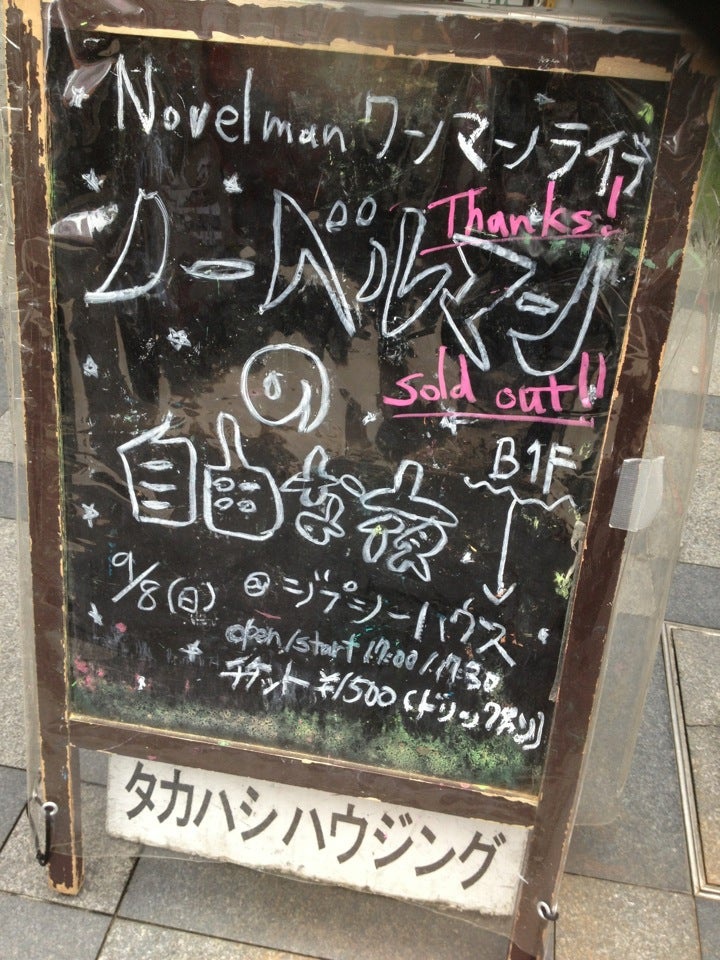 Novelman ワンマンライブ
Thanks!
ノーベルマン
sold out!!
の
自由な夜
B1F
9/8(日) @ジプシーハウス
open/start 17:00/17:30
チケット ¥1500(ドリンク
タカハシハウジング